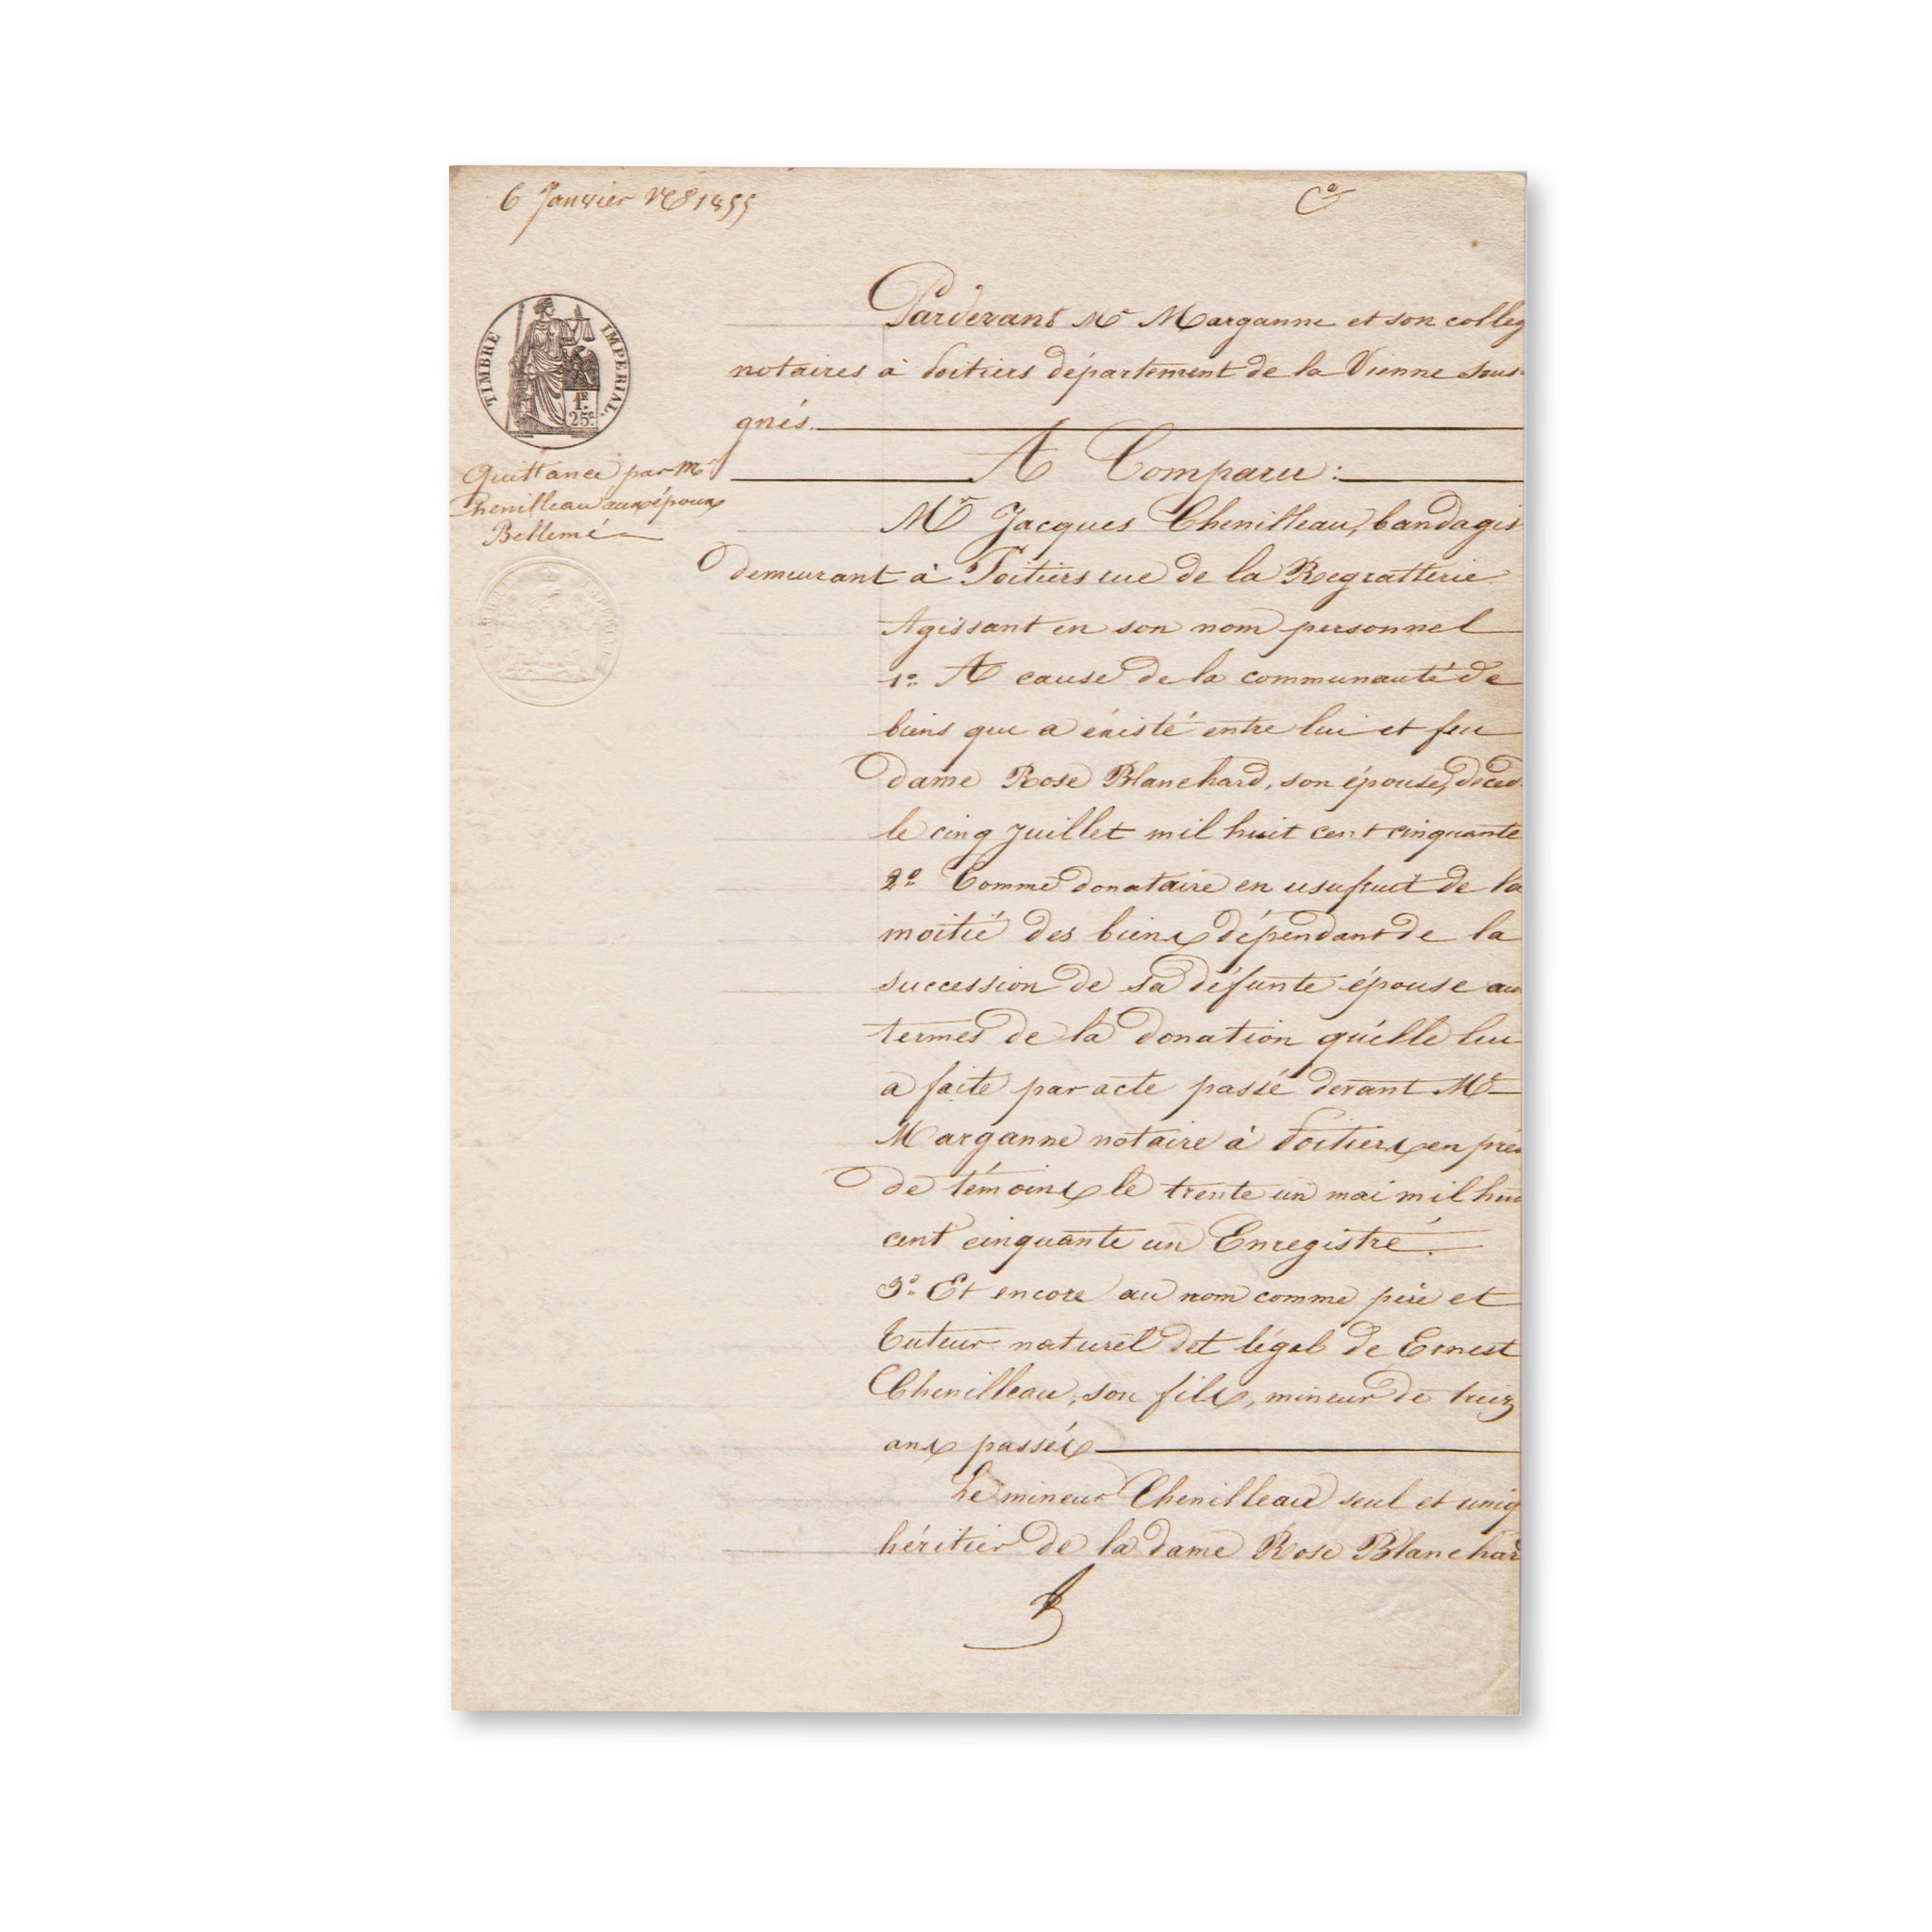 6 Janvier 1855
TIMBRE IMPERIAL.
1F.
25c.
Quittance par Mr
Chenilleau aux époux
Bellemé
Pardevant Me Marganne et son colleg
notaires à Poitiers département de la Vienne sous
gnés.
A Comparu :
Mr Jacques Chenilleau, bandagis
demeurant à Poitiers rue de la Regratterie
Agissant en son nom personnel
1o. A cause de la communauté de
biens qui a existé entre lui et feu
dame Rose Blanchard, son épouse, décéd
le cinq Juillet mil huit cent cinquante
2o. Comme donataire en usufruit de la
moitié des biens dépendant de la
succession de sa défunte épouse au
termes de la donation qu'elle lui
a faite par acte passé devant Me
Marganne notaire à Poitiers en prés
de témoins le trente un mai mil hui
cent cinquante un Enregistré.
3o. Et encore au nom comme père et
tuteur naturel et légal de Ernest
Chenilleau, son fils, mineur de treiz
ans passés
Le mineur Chenilleau seul et uniq
héritier de la dame Rose Blanchar